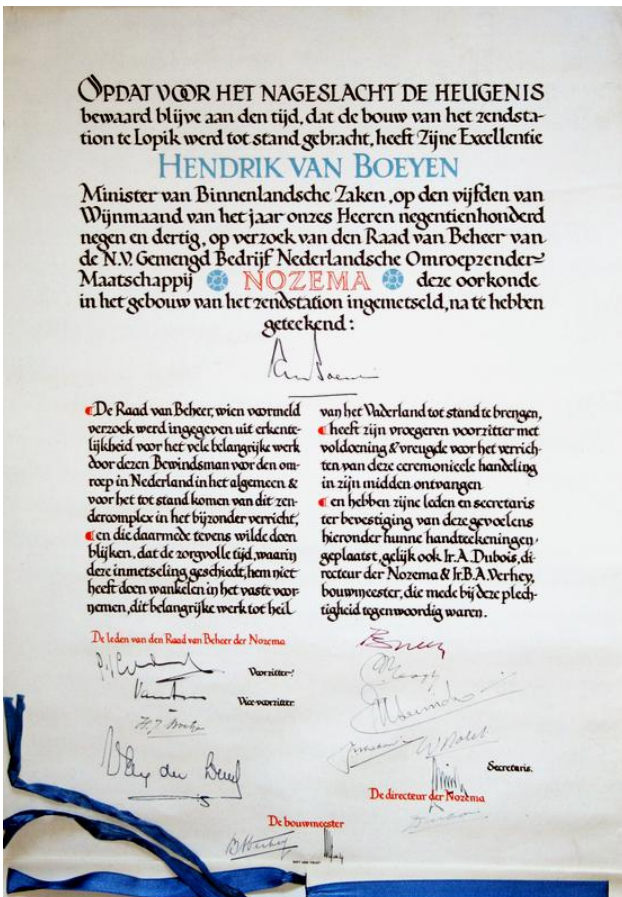 OPDAT VOOR HET NAGESLACHT DE HEUGENIS
bewaard blijve aan den tijd, dat de bouw van het zendsta-
tion te Lopik werd tot stand gebracht, heeft Zijne Excellentie
HENDRIK VAN BOEYEN
Minister van Binnenlandsche Zaken, op den vijfden van
Wijnmaand van het jaar onzes Heeren negentienhonderd
negen en dertig, op verzoek van den Raad van Beheer van
de N.V. Gemengd Bedrijf Nederlandsche Omroepzender-
Maatschappij NOZEMA deze oorkonde
in het gebouw van het zendstation ingemetseld, na te hebben
geteekend:
De Raad van Beheer, wien voormeld
verzoek werd ingegeven uit erkente-
lijkheid voor het vele belangrijke werk
door dezen Bewindsman voor den om-
roep in Nederland in het algemeen &
voor het tot stand komen van dit zen-
dercomplex in het bijzonder verricht,
en die daarmede tevens wilde doen
blijken, dat de zorgvolle tijd, waarin
deze inmetseling geschiedt, hem niet
heeft doen wankelen in het vaste voor-
nemen, dit belangrijke werk tot heil
van het Vaderland tot stand te brengen,
heeft zijn vroegeren voorzitter met
voldoening & vreugde voor het verrich-
ten van deze ceremonieele handeling
in zijn midden ontvangen
en hebben zijne leden en secretaris
ter bevestiging van deze gevoelens
hieronder hunne handteekeningen
geplaatst, gelijk ook Ir. A. Dubois, di-
recteur der Nozema & Ir. B.A. Verhey,
bouwmeester, die mede bij deze plech-
tigheid tegenwoordig waren.
De leden van den Raad van Beheer der Nozema
Voorzitter
Vice-voorzitter
Secretaris.
De directeur der Nozema
De bouwmeester